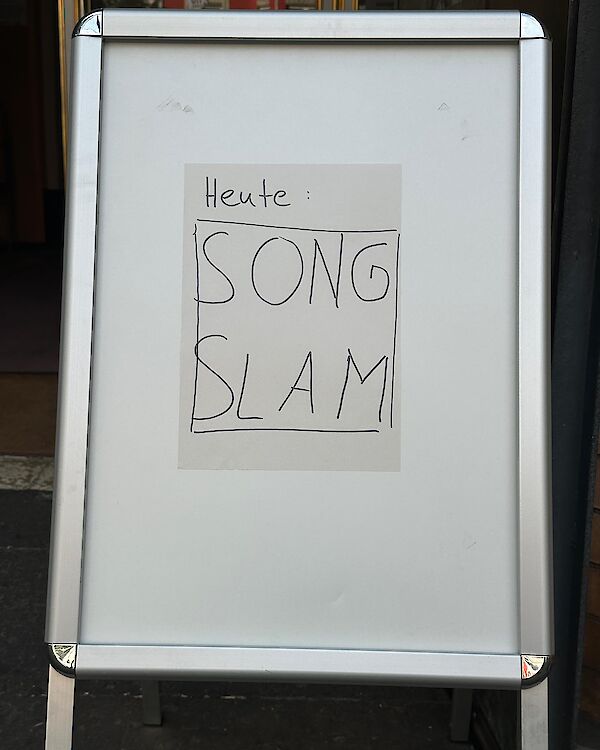 Heute :
SONG
SLAM